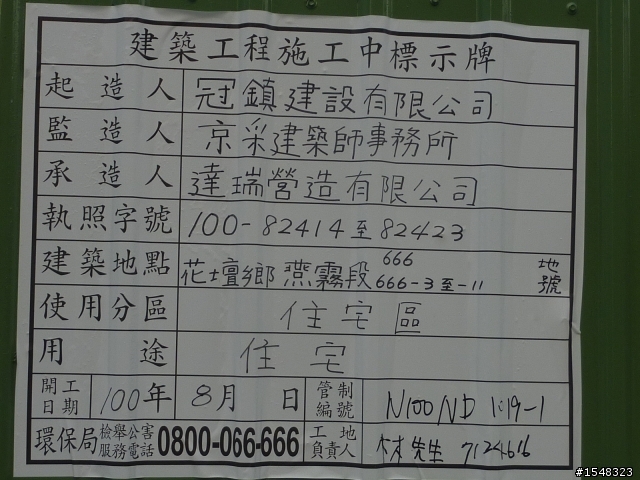 建築工程施工中標示牌
起造人 冠鎮建設有限公司
監造人 京采建築師事務所
承造人 達瑞營造有限公司
執照字號 100-82414至82423
建築地點 花壇鄉燕霧段 666 地
666-3至-11 號
使用分區 住宅區
用途 住宅
開工日期 100年 8月 日 管制編號 N100ND
環保局 檢舉公害服務電話 0800-066-666 工地負責人 林先生 7124616
#1548323